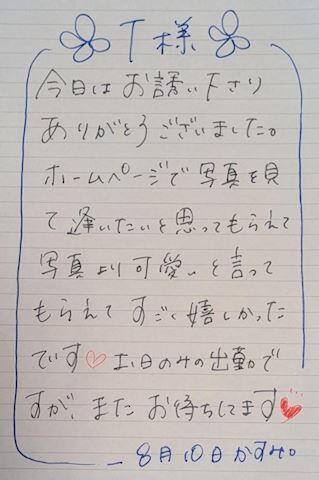 T様
今日はお誘い下さり
ありがとうございました。
ホームページで写真を見
て逢いたいと思ってもらえて
写真より可愛いと言って
もらえてすごく嬉しかった
です♡土日のみの出勤で
すが、またお待ちしてます♥
8月10日かすみ。